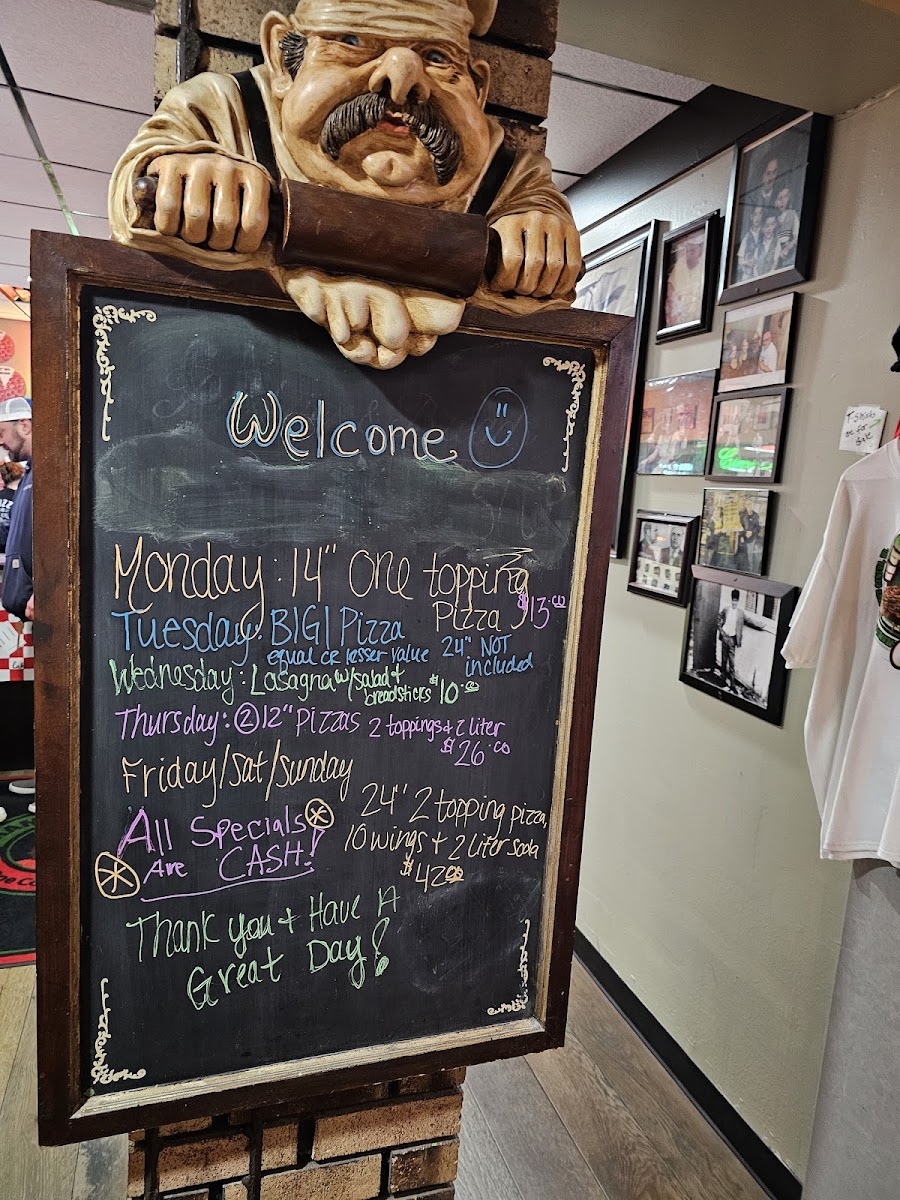 Welcome
Monday: 14" One topping
Pizza $13.00
Tuesday: B1G1 Pizza
equal or lesser value 24" NOT
included
Wednesday: Lasagna w/salad +
breadsticks $10.00
Thursday: ② 12" Pizzas 2 toppings + 2 liter
$26.00
Friday/Sat/Sunday
24" 2 topping pizza,
10 wings + 2 liter soda
$42.00
All Specials
Are CASH!
Thank you + Have A
Great Day!
T-Shirts
are for
Sale